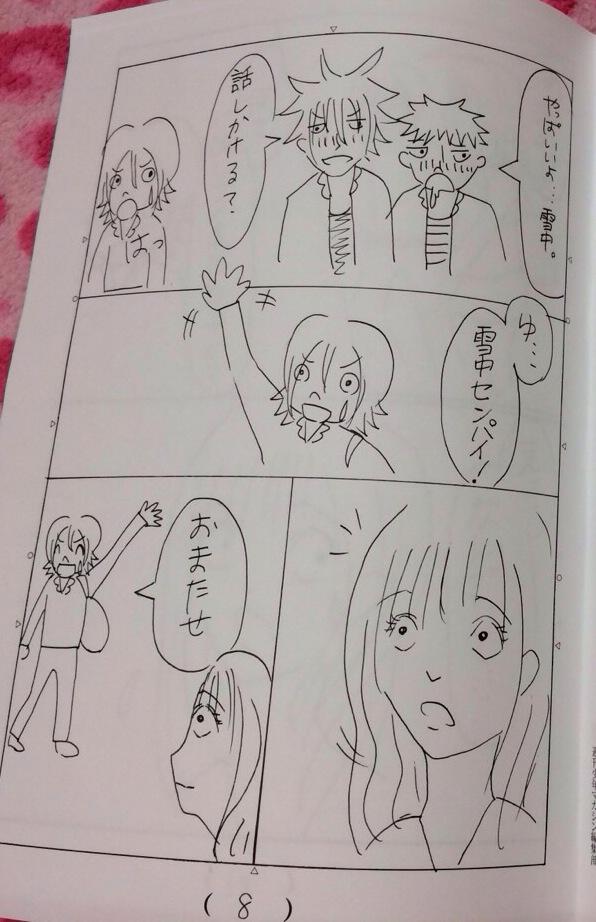 やっぱいいよ…雪中。
話しかける?
はっ
ゆ…
雪中センパイ!
おまたせ
(8)